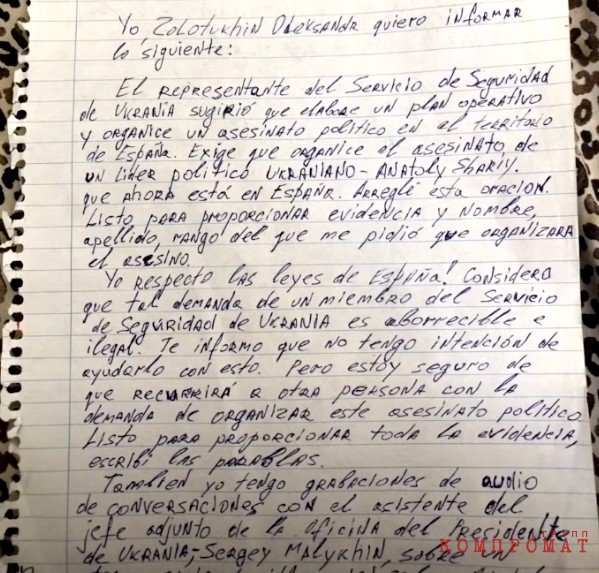 Yo Zolotukhin Oleksandr quiero informar
lo siguiente:
El representante del Servicio de Seguridad
de Ukrania sugirió que elabore un plan operativo
y organice un asesinato político en el territorio
de España. Exige que organice el asesinato de
un líder político Ukraniano - Anatoly Shariy.
que ahora está en España. Arreglé esta oracion.
Listo para proporcionar evidencia y nombre,
apellido, rango del que me pidió que organizara
el asesino.
Yo respecto las leyes de España! Considero
que tal demanda de un miembro del Servicio
de Seguridad de Ukrania es aborrecible e
ilegal. Te informo que no tengo intención de
ayudarlo con esto. Pero estoy seguro de
que recurrirá a otra persona con la
demanda de organizar este asesinato político
Listo para proporcionar toda la evidencia,
escribí las parablas.
Tambien yo tengo grabaciones de audio
de conversaciones con el asistente del
jefe adjunto de la oficina del Precidente
de Ukrania, - Sergey Malykhin, sobre un
КОМПРОМАТ